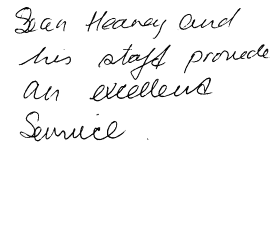 Sean Heaney and
his staff provide
an excellent
Service.